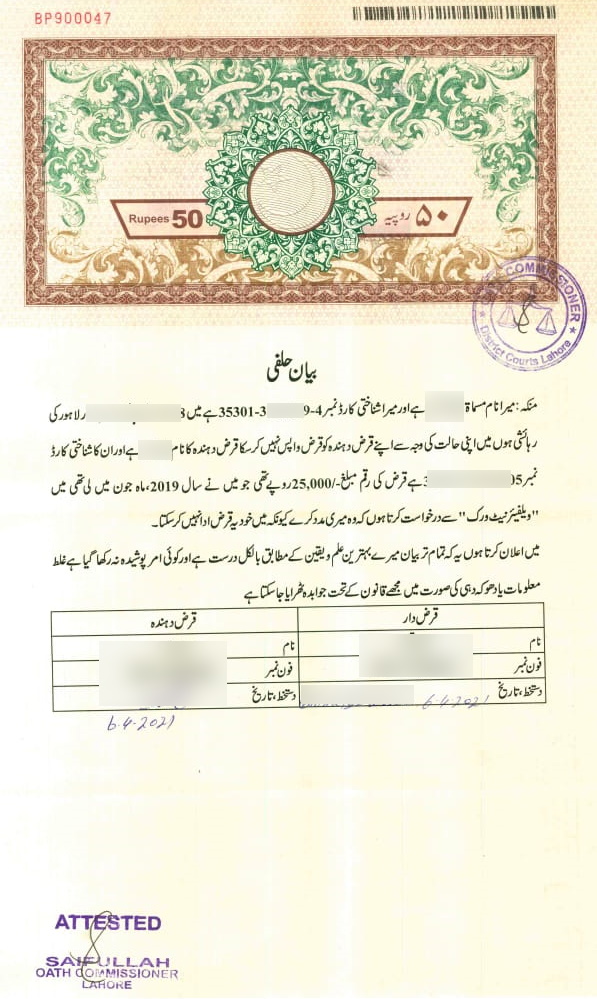 BP900047
Rupees 50
۵۰ روپیہ
OATH COMMISSIONER
District Courts Lahore
بیان حلفی
منکہ: میرا نام مسماۃ ہے اور میرا شناختی کارڈ نمبر 4-9 35301-3 ہے میں 8 ر لاہور کی
رہائشی ہوں میں اپنی حالت کی وجہ سے اپنے قرض دہندہ کو قرض واپس نہیں کر سکتا قرض دہندہ کا نام ہے اور ان کا شناختی کارڈ
نمبر 3 05 ہے قرض کی رقم مبلغ -/25,000 روپے تھی جو میں نے سال 2019، ماہ جون میں لی تھی میں
"ویلفیئر نیٹ ورک" سے درخواست کرتا ہوں کہ وہ میری مدد کرے کیونکہ میں خود یہ قرض ادا نہیں کر سکتا۔
میں اعلان کرتا ہوں یہ کہ تمام تر بیان میرے بہترین علم و یقین کے مطابق بالکل درست ہے اور کوئی امر پوشیدہ نہ رکھا گیا ہے غلط
معلومات یا دھوکہ دہی کی صورت میں مجھے قانون کے تحت جوابدہ ٹھرایا جا سکتا ہے
قرض دار قرض دہندہ
نام نام
فون نمبر فون نمبر
دستخط، تاریخ 6-4-2021 دستخط، تاریخ
6-4-2021
ATTESTED
SAIFULLAH
OATH COMMISSIONER
LAHORE